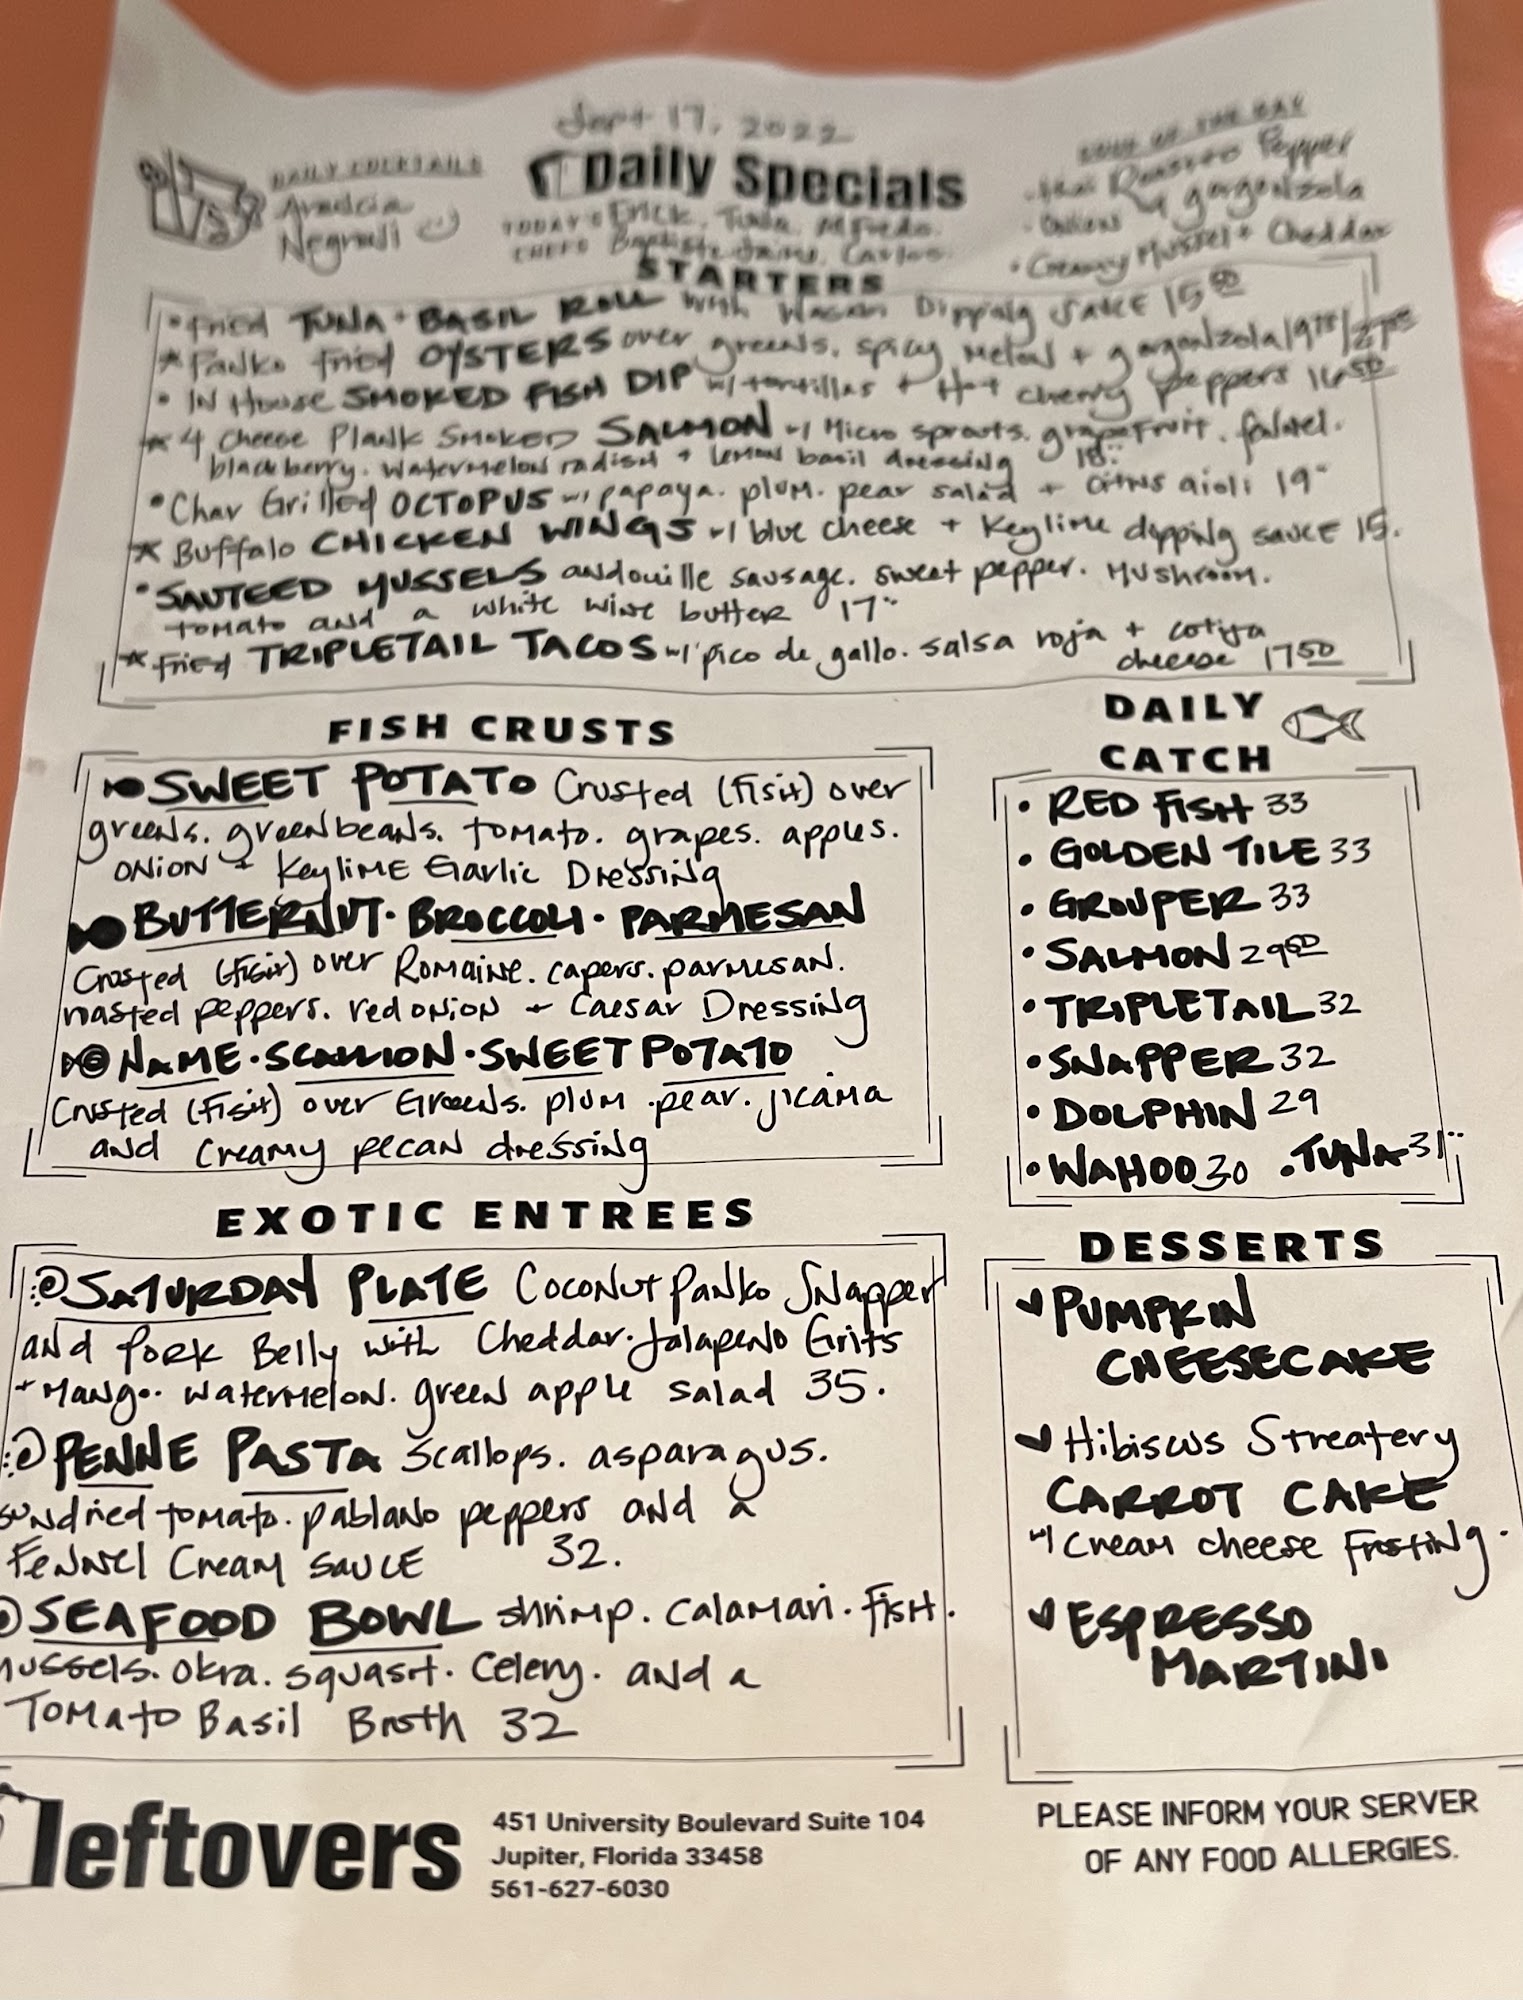 Sept 17, 2022
DAILY COCKTAILS
Negroni
Daily Specials
TODAY'S Erick, Tuna, Alfredo.
CHEFS Baptiste. Jaime. Carlos.
SOUP OF THE DAY
Roasted Pepper
Onions & gorgonzola
• Creamy Mussel + Cheddar
STARTERS
• Fried TUNA + BASIL ROLL with Wasabi Dipping Sauce 15 50
* Panko fried OYSTERS over greens, spicy melon + gorgonzola
• IN House SMOKED FISH DIP w/ tortillas + Hot cherry peppers 16 50
* 4 Cheese Plank Smoked SALMON w/ Micro sprouts. grapefruit. fennel.
blackberry. watermelon radish + lemon basil dressing 18..
• Char Grilled OCTOPUS w/ papaya. plum. pear salad + citrus aioli 19..
* Buffalo CHICKEN WINGS w/ blue cheese + Keylime dipping sauce 15.
• SAUTEED MUSSELS andouille sausage. sweet pepper. Mushroom.
tomato and a white wine butter 17..
* Fried TRIPLETAIL TACOS w/ pico de gallo. salsa roja + cotija
cheese 17 50
FISH CRUSTS
SWEET POTATO Crusted (fish) over
greens. greenbeans. tomato. grapes. apples.
ONION + Keylime Garlic Dressing
BUTTERNUT. BROCCOLI. PARMESAN
Crusted (fish) over Romaine. capers. parmesan.
roasted peppers. red onion + Caesar Dressing
NAME. SCALLION. SWEET POTATO
Crusted (fish) over Greens. plum. pear. jicama
and creamy pecan dressing
DAILY
CATCH
• RED FISH 33
• GOLDEN TILE 33
• GROUPER 33
• SALMON 29 50
• TRIPLETAIL 32
• SNAPPER 32
• DOLPHIN 29
• WAHOO 30 . TUNA 31..
EXOTIC ENTREES
SATURDAY PLATE Coconut Panko Snapper
and Pork Belly with Cheddar. Jalapeno Grits
+ Mango. watermelon. green apple salad 35.
PENNE PASTA scallops. asparagus.
sundried tomato. pablano peppers and a
Fennel Cream sauce 32.
SEAFOOD BOWL shrimp. calamari. fish.
Mussels. okra. squash. celery. and a
Tomato Basil Broth 32
DESSERTS
PUMPKIN
CHEESECAKE
Hibiscus Streatery
CARROT CAKE
w/ Cream cheese Frosting.
ESPRESSO
MARTINI
leftovers
451 University Boulevard Suite 104
Jupiter, Florida 33458
561-627-6030
PLEASE INFORM YOUR SERVER
OF ANY FOOD ALLERGIES.